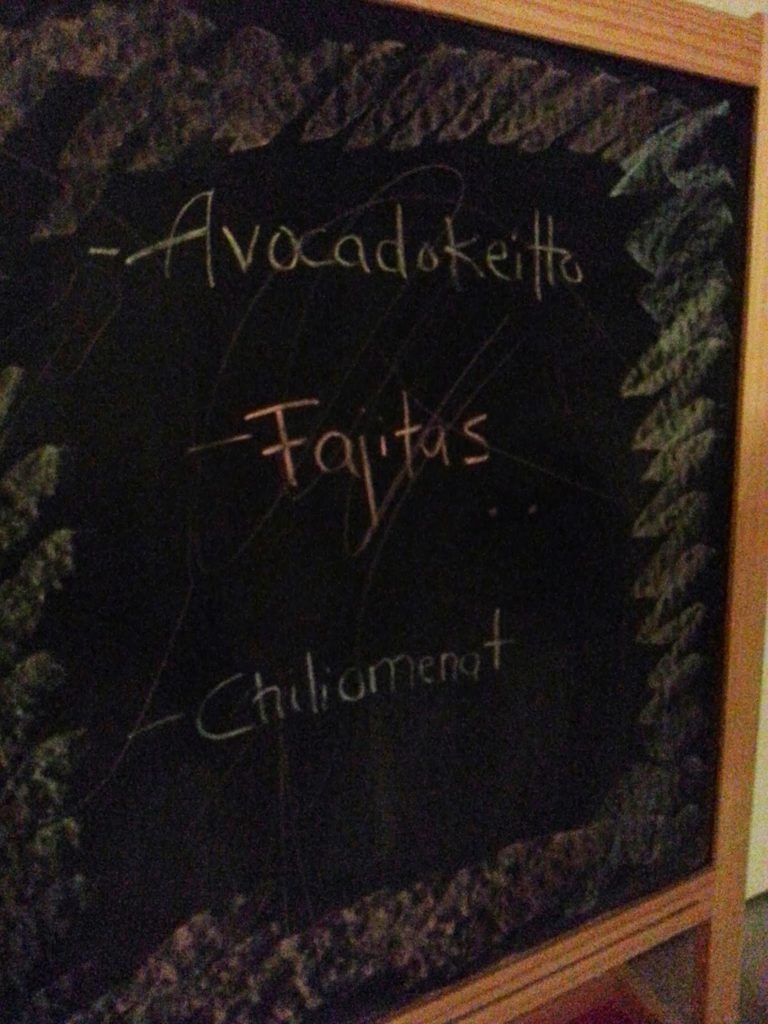 - Avocadokeitto
- Fajitas
- Chiliomenat